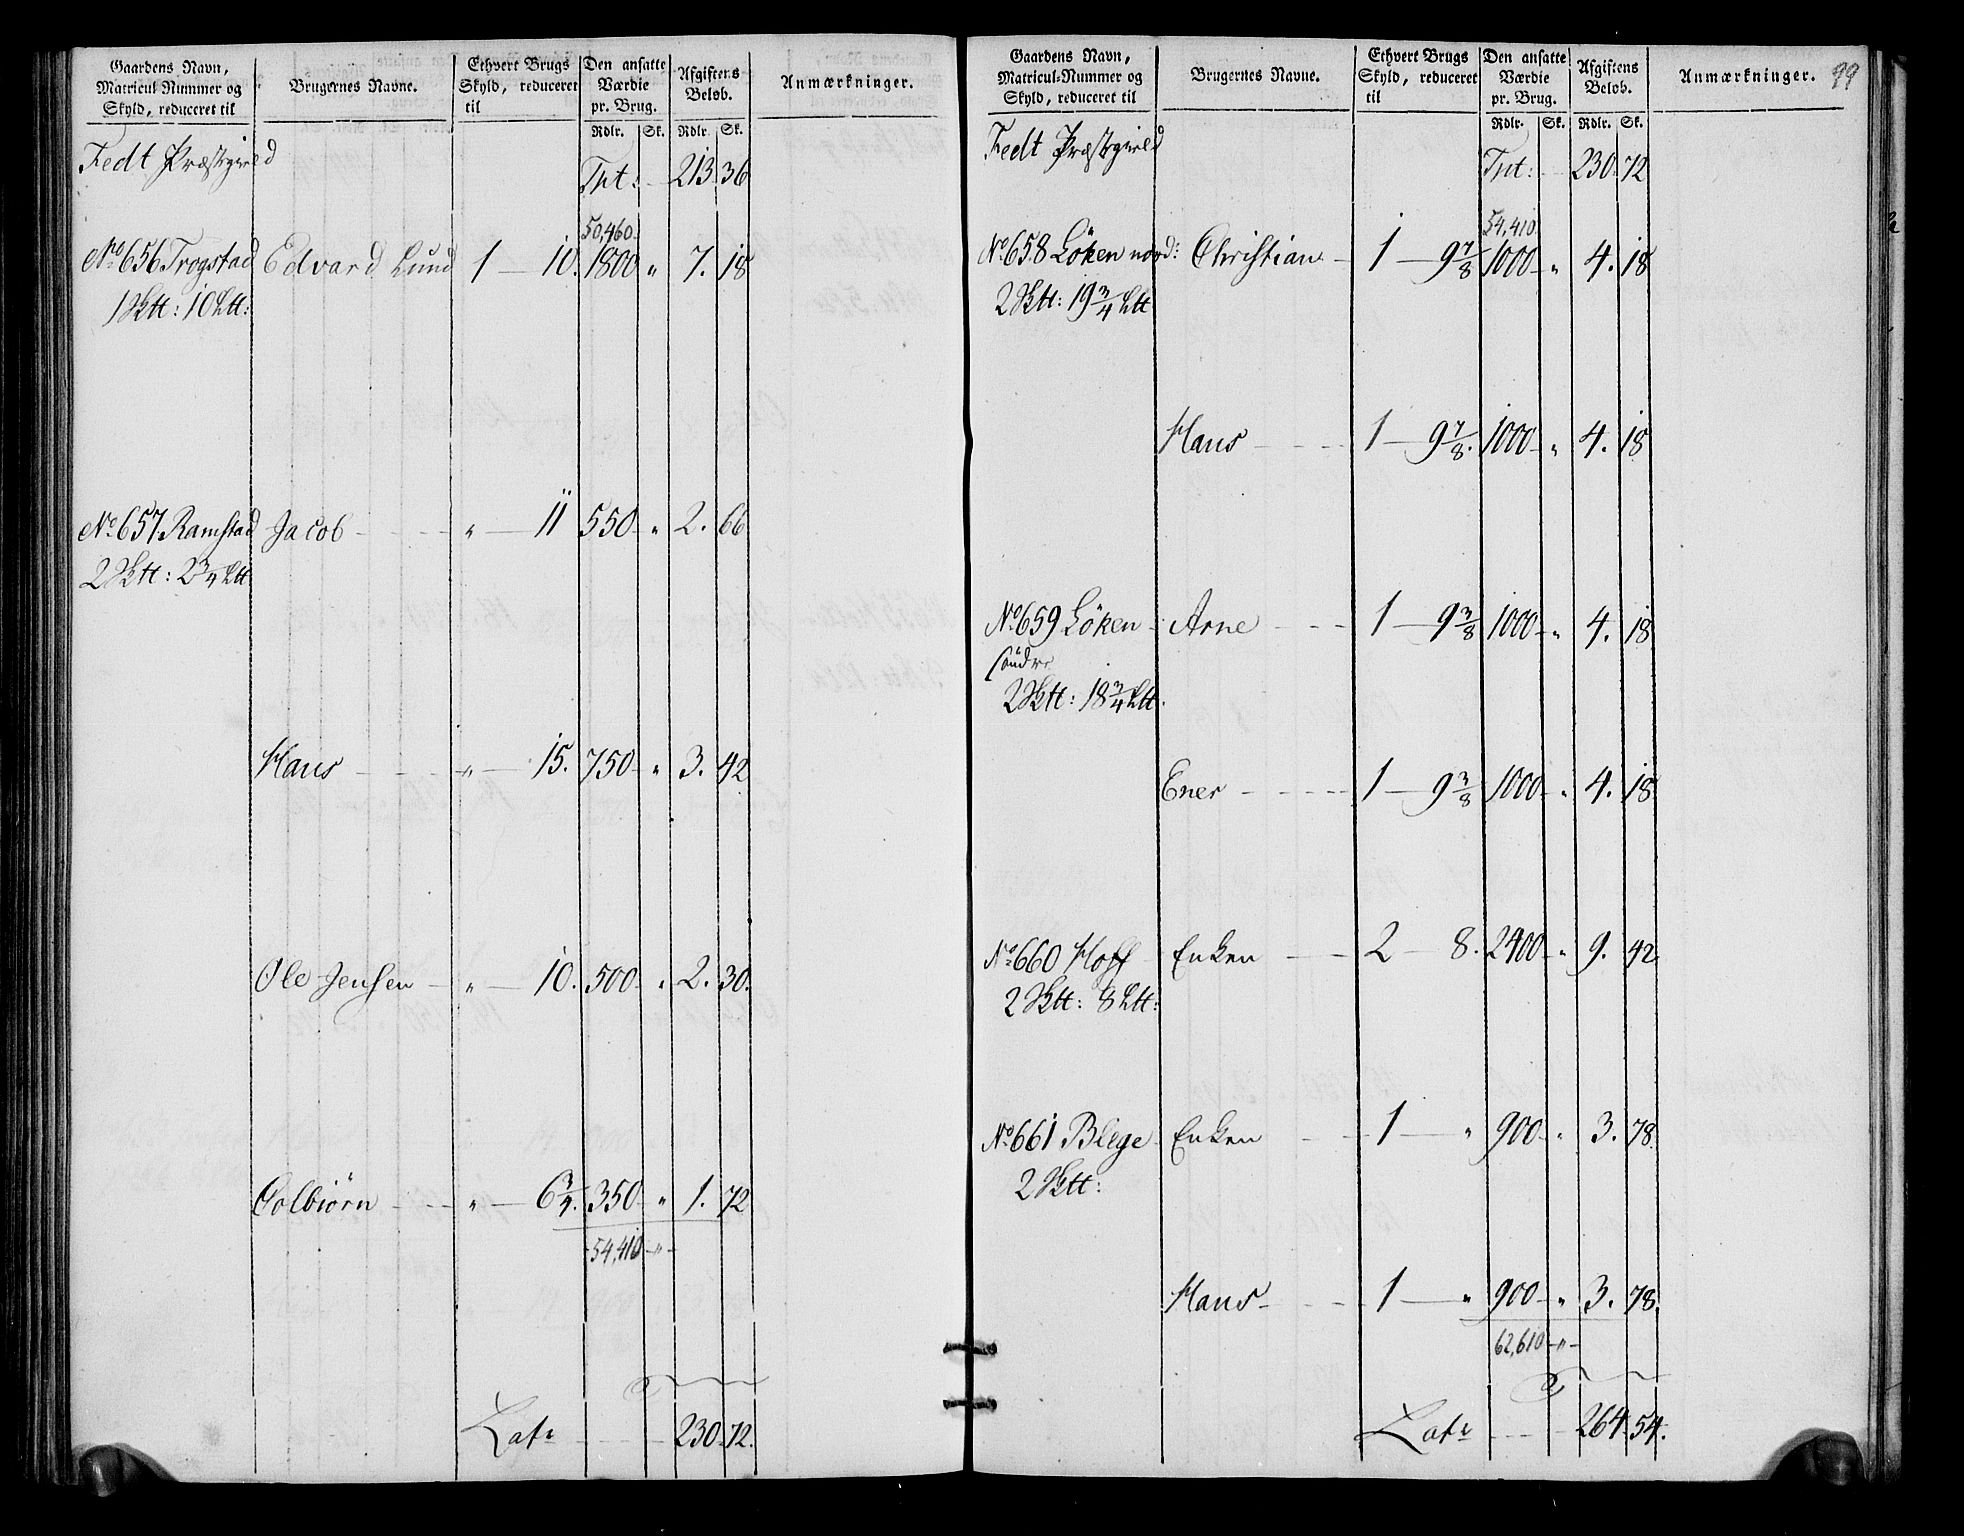 Gaardens Navn, Matricul-Nummer og Skyld, reduceret til
Brugernes Navne.
Ethvert Brugs Skyld, reduceret til
Den ansatte Værdie pr. Brug.
Afgiftens Belöb.
Anmærkninger.
Rdlr. Sk. Rdlr. Sk.
Fedt Præstegield
Trt: 213. 36
50,460.
No 656 Trogstad Edvard Lund 1 — 10. 1800 " 7. 18
1 Sktt: 10 Ltt:
No 657. Ramstad Jacob " — 11 550 " 2. 66
2 Sktt: 2 3/4 Ltt
Hans " — 15. 750 " 3. 42
Ole Jensen " — 10. 500 " 2. 30.
Colbiørn " — 6 3/4. 350 " 1. 72
54,410 "
Latr 230. 72.
Gaardens Navn, Matricul-Nummer og Skyld, reduceret til
Brugernes Navne.
Ethvert Brugs Skyld, reduceret til
Den ansatte Værdie pr. Brug.
Afgiftens Belöb.
Anmærkninger.
99
Rdlr. Sk. Rdlr. Sk.
Fedt Præstegield
Trt: 230. 72
54,410
No 658 Löken nord: Christian 1 — 9 7/8 1000 " 4. 18
2 Sktt: 19 3/4 Ltt
Hans 1 — 9 7/8. 1000 " 4. 18
No 659 Löken Arne 1 — 9 3/8 1000 " 4. 18
söndre
2 Sktt: 18 3/4 Ltt.
Ener 1 — 9 3/8 1000 " 4. 18
No 660 Hoff Enken 2 — 8. 2400 " 9. 42
2 Sktt: 8 Ltt:
No 661 Blege Enken 1 — " 900 " 3. 78
2 Sktt:
Hans 1 — " 900 " 3. 78.
62,610 "
Latr 264. 54.